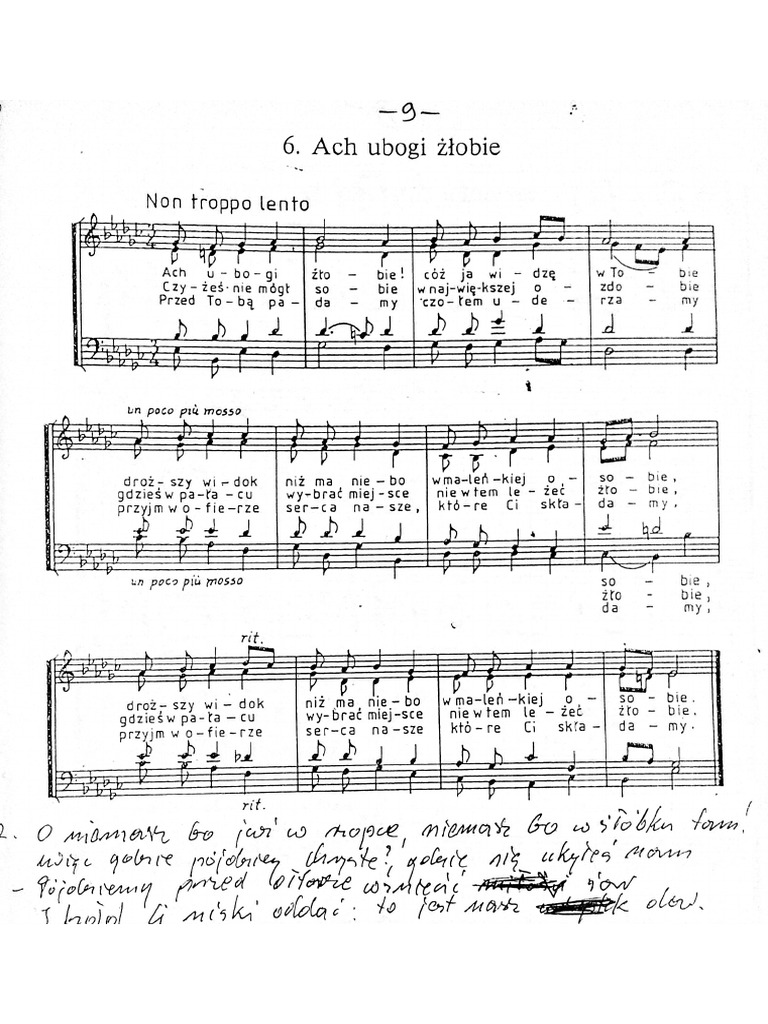 — 9 —
6. Ach ubogi żłobie
Non troppo lento
Ach u-bo-gi żło-bie! cóż ja wi-dzę w To-bie
Czy-żeś-nie mógł so-bie w naj-więk-szej o-zdo-bie
Przed To-bą pa-da-my czo-łem u-de-rza-my
un poco più mosso
droż-szy wi-dok niż ma nie-bo w maleń-kiej o-so-bie,
gdzieś w pa-ła-cu wy-brać miej-sce nie w tem le-żeć żło-bie,
przyjm w o-fie-rze ser-ca na-sze, któ-re Ci skła-da-my,
un poco più mosso
so-bie,
żło-bie,
da-my,
rit.
droż-szy wi-dok niż ma nie-bo w maleń-kiej o-so-bie.
gdzieś w pa-ła-cu wy-brać miej-sce nie w tem le-żeć żło-bie.
przyjm w o-fie-rze ser-ca na-sze któ-re Ci skła-da-my.
rit.
2. O niemasz Go już w szopce, niemasz Go w żłóbku tam!
więc gdzie pójdziemy Chryste?, gdzie się ukryłeś nam
- Pójdziemy przed ołtarze wzniecić żar
I hołd Ci niski oddać: to jest nasz dar.